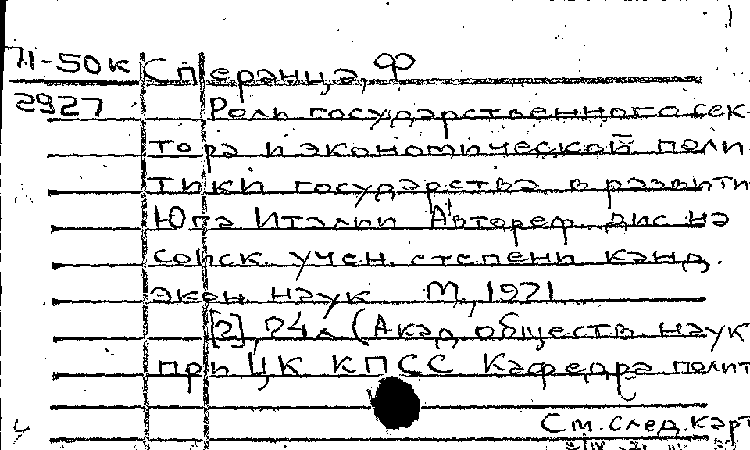 71-50к Сперанца, Ф
2927 Роль государственного сек
тора и экономической поли
тики государства в развити
Юга Италии Автореф. дис. на
соиск. учен. степени канд.
экон. наук М., 1971
[2], 24 л (Акад обществ наук
при ЦК КПСС Кафедра полит
См. след. карт